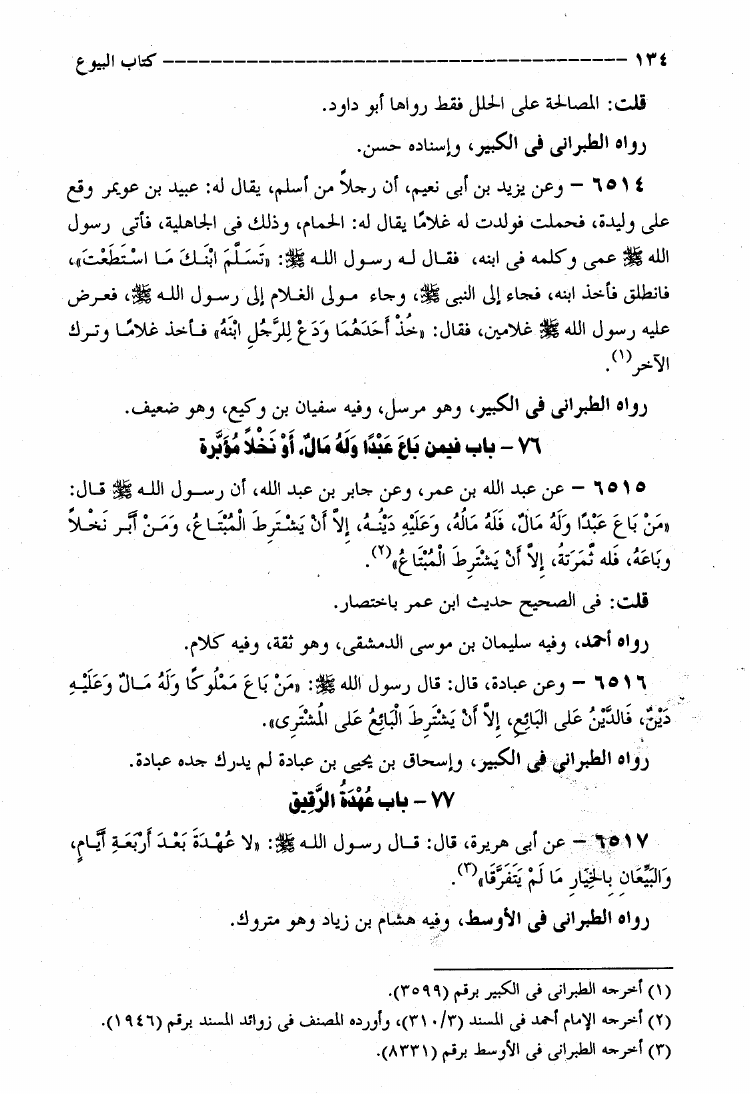 ١٣٤ ــــــــــــــــــــــــــــــــــــــــــــــــــــــــــــــــ كتاب البيوع
قلت: المصالحة على الحلل فقط رواها أبو داود.
رواه الطبرانى فى الكبير، وإسناده حسن.
٦٥١٤ – وعن يزيد بن أبى نعيم، أن رجلاً من أسلم، يقال له: عبيد بن عويمر وقع
على وليدة، فحملت فولدت له غلامًا يقال له: الحمام، وذلك فى الجاهلية، فأتى رسول
الله ﷺ عمى وكلمه فى ابنه، فقال له رسول الله ﷺ: «تَسَلَّمَ ابْنَكَ مَا اسْتَطَعْتَ»،
فانطلق فأخذ ابنه، فجاء إلى النبى ﷺ، وجاء مولى الغلام إلى رسول الله ﷺ، فعرض
عليه رسول الله ﷺ غلامين، فقال: «خُذْ أَحَدَهُمَا وَدَعْ لِلرَّجُلِ ابْنَهُ» فأخذ غلامًا وترك
الآخر(١).
رواه الطبرانى فى الكبير، وهو مرسل، وفيه سفيان بن وكيع، وهو ضعيف.
٧٦ – باب فيمن بَاعَ عَبْدًا وَلَهُ مَالٌ، أَوْ نَخْلاً مُؤَبَّرة
٦٥١٥ – عن عبد الله بن عمر، وعن جابر بن عبد الله، أن رسول الله ﷺ قال:
«مَنْ بَاعَ عَبْدًا وَلَهُ مَالٌ، فَلَهُ مَالُهُ، وَعَلَيْهِ دَيْنُهُ، إِلاَّ أَنْ يَشْتَرِطَ الْمُبْتَاعُ، وَمَنْ أَبَّر نَخْلاً
وبَاعَهُ، فَله ثَمَرَتهُ، إِلاَّ أَنْ يَشْتَرِطَ الْمُبْتَاعُ»(٢).
قلت: فى الصحيح حديث ابن عمر باختصار.
رواه أحمد، وفيه سليمان بن موسى الدمشقى، وهو ثقة، وفيه كلام.
٦٥١٦ – وعن عبادة، قال: قال رسول الله ﷺ: «مَنْ بَاعَ مَمْلُوكًا وَلَهُ مَالٌ وَعَلَيْهِ
دَيْنٌ، فَالدَّيْنُ عَلى البَائِعِ، إِلاَّ أَنْ يَشْتَرِطَ الْبَائِعُ عَلى المُشْتَرِى».
رواه الطبرانى فى الكبير، وإسحاق بن يحيى بن عبادة لم يدرك جده عبادة.
٧٧ – باب عُهْدَةُ الرَّقِيق
٦٥١٧ – عن أبى هريرة، قال: قال رسول الله ﷺ: «لا عُهْدَةَ بَعْدَ أَرْبَعَةِ أَيَّامٍ،
وَالبَيِّعَانِ بِالخِيَارِ مَا لَمْ يَتَفَرَّقَا»(٣).
رواه الطبرانى فى الأوسط، وفيه هشام بن زياد وهو متروك.
(١) أخرجه الطبرانى فى الكبير برقم (٣٥٩٩).
(٢) أخرجه الإمام أحمد فى المسند (٣١٠/٣)، وأورده المصنف فى زوائد المسند برقم (١٩٤٦).
(٣) أخرجه الطبرانى فى الأوسط برقم (٨٣٣١).